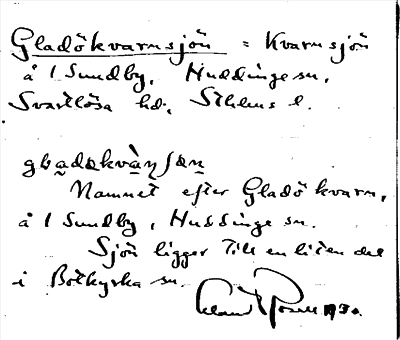 Gladökvarnsjön = Kvarnsjön
å 1 Sundby, Huddinge sn,
Svartlösa hd, Sthlms l.
Namnet efter Gladö kvarn,
å 1 Sundby, Huddinge sn.
Sjön ligger till en liten del
i Botkyrka sn.
1930.